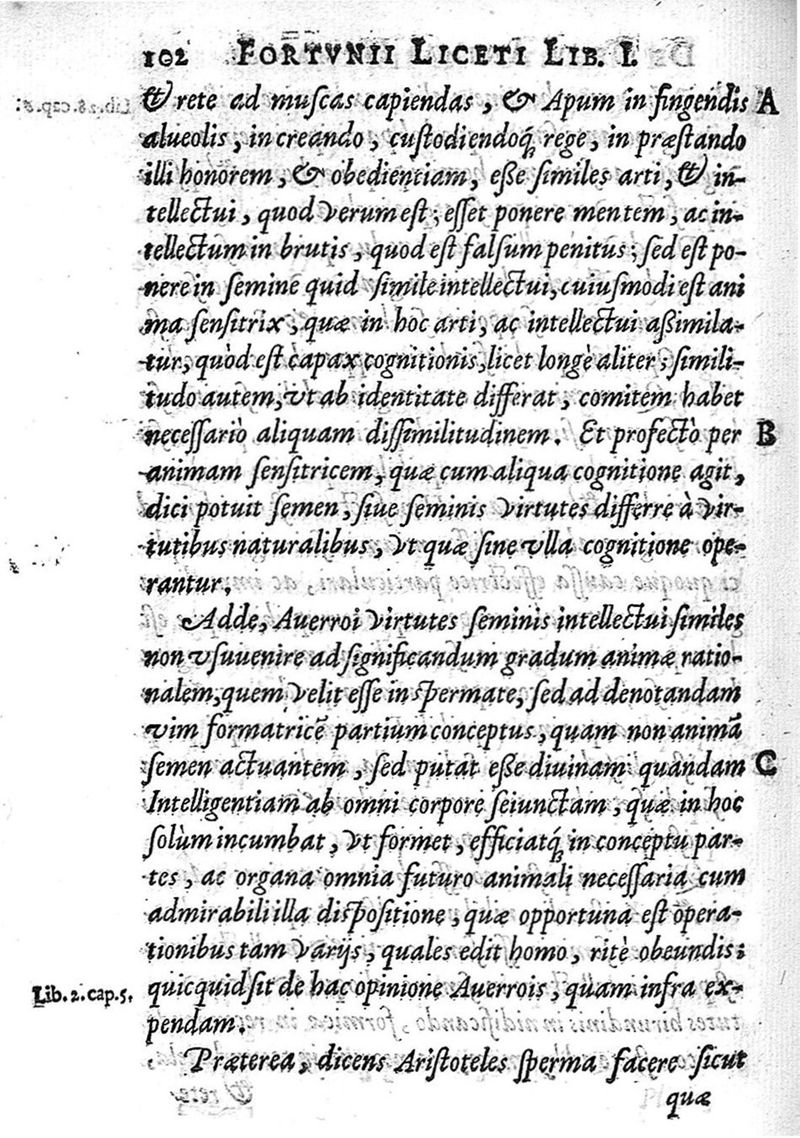 102 FORTVNII LICETI LIB. I.
& rete ad muſcas capiendas, & Apum in fingendis A
alueolis, in creando, cuſtodiendoq́; rege, in præſtando
illi honorem, & obedientiam, eſſe ſimiles arti, & in-
tellectui, quod verum eſt; eſſet ponere mentem, ac in-
tellectum in brutis, quod eſt falſum penitus; ſed eſt po-
nere in ſemine quid ſimile intellectui, cuiuſmodi eſt ani
ma ſenſitrix, quæ in hoc arti, ac intellectui aßimila-
tur, quòd eſt capax cognitionis, licet longè aliter; ſimili-
tudo autem, vt ab identitate differat, comitem habet
neceſſariò aliquam diſſimilitudinem. Et profectò per B
animam ſenſitricem, quæ cum aliqua cognitione agit,
dici potuit ſemen, ſiue ſeminis virtutes differre à vir-
tutibus naturalibus, vt quæ ſine vlla cognitione ope-
rantur.
Adde, Auerroi virtutes ſeminis intellectui ſimiles
non vſuuenire ad ſignificandum gradum animæ ratio-
nalem, quem velit eſſe in ſpermate, ſed ad denotandam
vim formatricẽ partium conceptus, quam non animã
ſemen actuantem, ſed putat eße diuinam quandam C
Intelligentiam ab omni corpore ſeiunctam, quæ in hoc
ſolùm incumbat, vt formet, efficiatq́; in conceptu par-
tes, ac organa omnia futuro animali neceſſaria cum
admirabili illa diſpoſitione, quæ opportuna eſt opera-
tionibus tam varijs, quales edit homo, ritè obeundis:
Lib. 2. cap. 5. quicquid ſit de hac opinione Auerrois, quam infra ex-
pendam.
Præterea, dicens Ariſtoteles ſperma facere ſicut
quæ